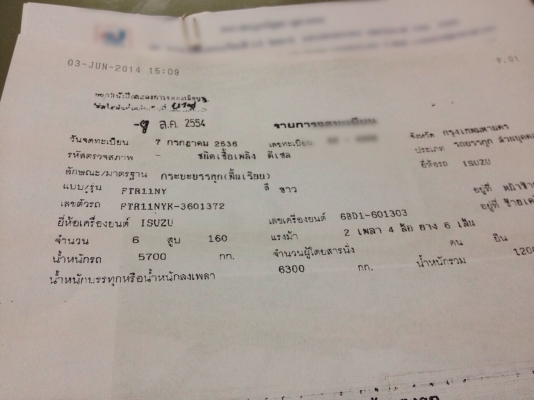 03-JUN-2014 15:09 P.01
-9 ส.ค. 2554 รายการจดทะเบียน
วันจดทะเบียน 7 กรกฎาคม 2536 เลขทะเบียน จังหวัด กรุงเทพมหานคร
รหัสตรวจสภาพ - ชนิดเชื้อเพลิง ดีเซล ประเภท รถบรรทุก ส่วนบุคคล
ลักษณะ/มาตรฐาน กระบะบรรทุก(พื้นเรียบ) ยี่ห้อรถ ISUZU
แบบ/รุ่น FTR11NY สี ขาว
เลขตัวรถ FTR11NYK-3601372 อยู่ที่
ยี่ห้อเครื่องยนต์ ISUZU เลขเครื่องยนต์ 6BD1-601303 อยู่ที่
จำนวน 6 สูบ 160 แรงม้า 2 เพลา 4 ล้อ ยาง 6 เส้น
น้ำหนักรถ 5700 กก. จำนวนผู้โดยสารนั่ง คน ยืน
น้ำหนักบรรทุกหรือน้ำหนักลงเพลา 6300 กก. น้ำหนักรวม 1200